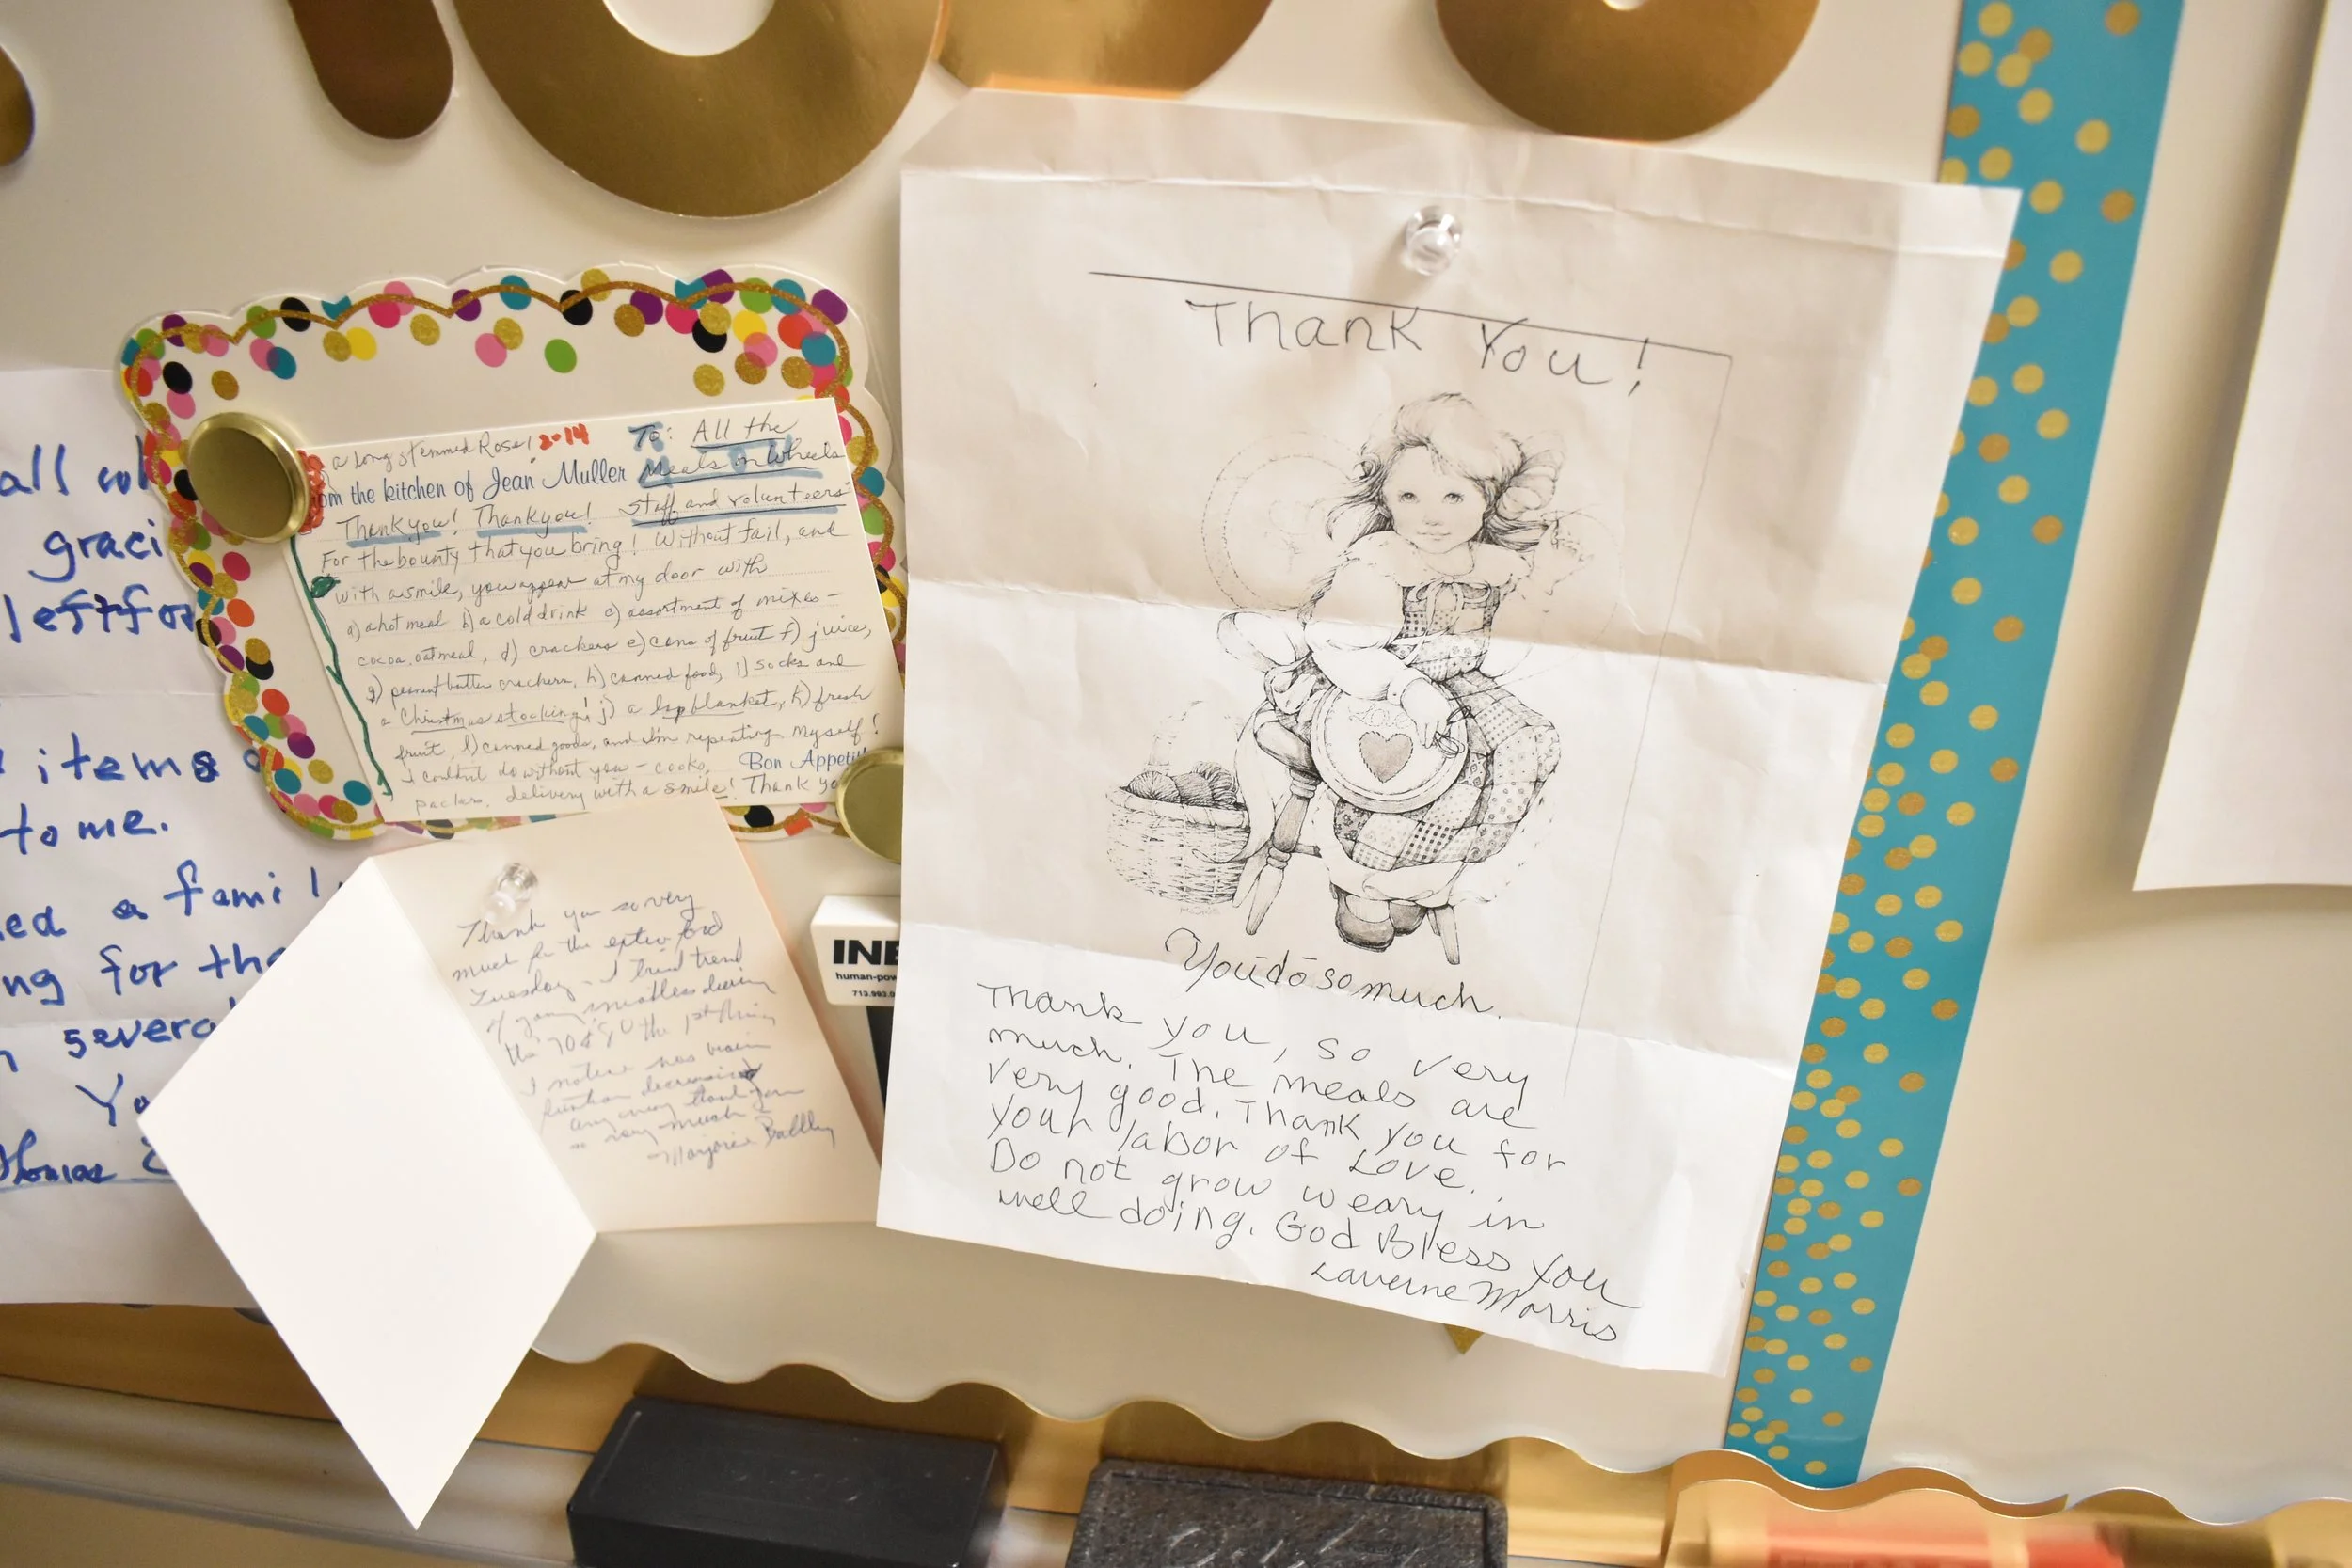 all
graci
left for
items
to me.
ed a famil
ng for the
severa
Yo
Thomas
a long stemmed Rose! 2-14
om the kitchen of Jean Muller
To: All the
Meals on Wheels
staff and volunteers
Thank you! Thank you!
For the bounty that you bring! Without fail, and
with a smile, you appear at my door with
a) a hot meal b) a cold drink c) assortment of mixes-
cocoa, oatmeal, d) crackers e) cans of fruit f) juice,
g) peanut butter crackers, h) canned food, i) socks and
a Christmas stocking! j) a lap blanket, k) fresh
fruit, l) canned goods, and I'm repeating myself!
I couldn't do without you - cooks,
Bon Appetit
packers, delivery with a smile! Thank yo
Thank you so very
much for the extra food
Tuesday - I
of going
the 70 & 90 the 1st thing
I notice
function
any way thank you
so very much
- Marjorie
INE
human-pow
713.993.0
Thank You!
You do so much.
Thank you, so very
much. The meals are
very good. Thank you for
your labor of Love.
Do not grow weary in
well doing. God Bless You
Laverne Morris